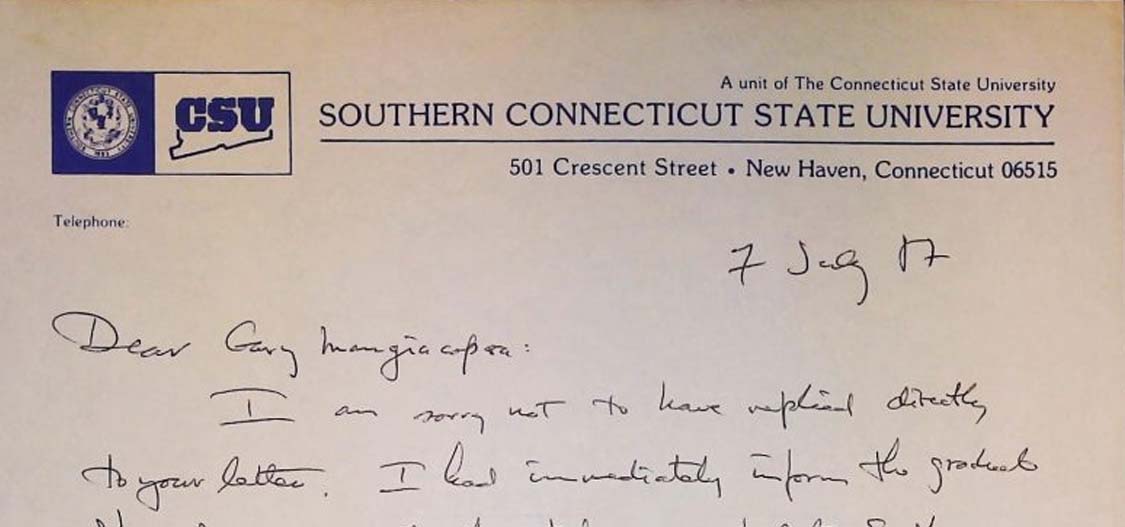 CSU
A unit of The Connecticut State University
SOUTHERN CONNECTICUT STATE UNIVERSITY
501 Crescent Street • New Haven, Connecticut 06515
Telephone:
7 July 87
Dear Gary Mangiacopra:
I am sorry not to have replied directly
to your letter. I had immediately inform the graduate